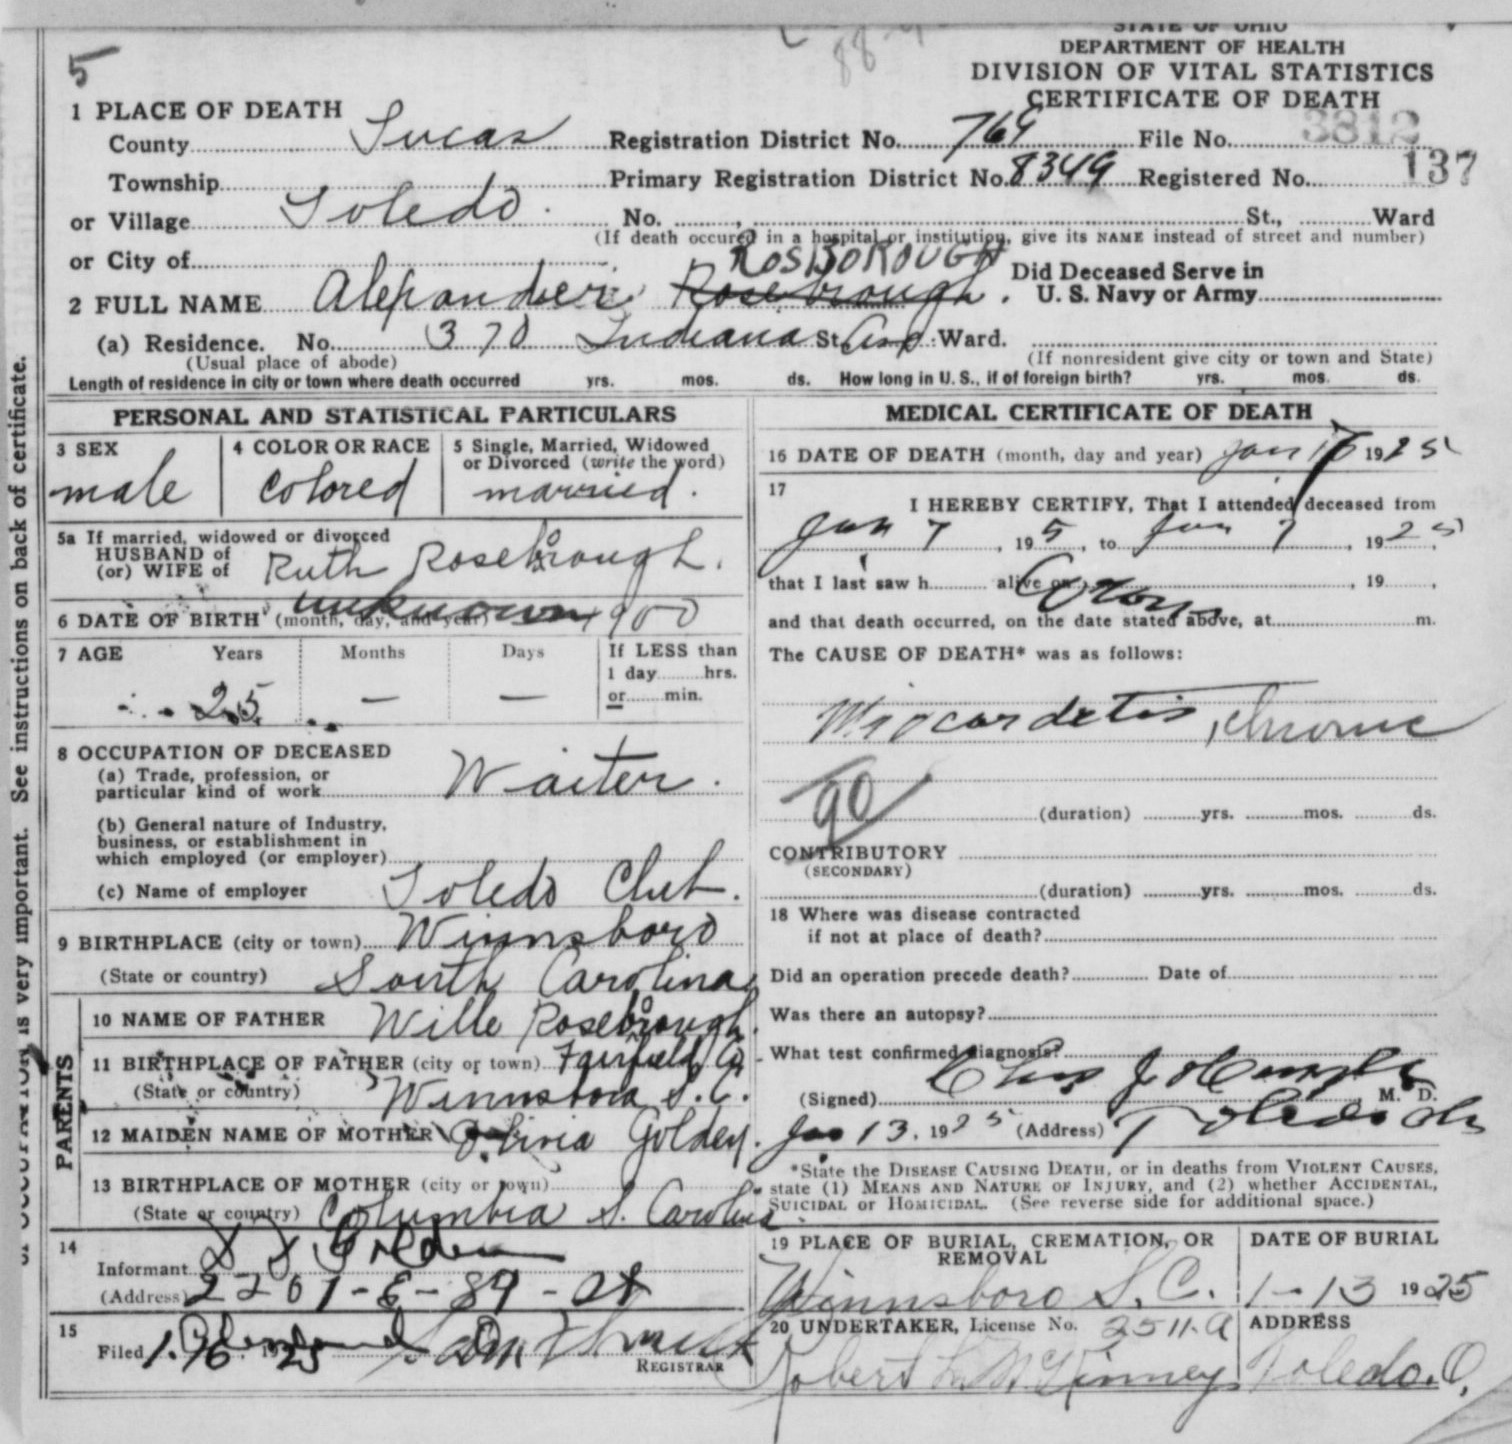 5
STATE OF OHIO
DEPARTMENT OF HEALTH
DIVISION OF VITAL STATISTICS
CERTIFICATE OF DEATH
1 PLACE OF DEATH
County Lucas Registration District No. 769 File No. 3812
Township Primary Registration District No. 8349 Registered No. 137
or Village Toledo. No. , St., Ward
(If death occured in a hospital or institution, give its NAME instead of street and number)
or City of
ROSBOROUGH
Did Deceased Serve in
U. S. Navy or Army
2 FULL NAME Alexander Rosebrough.
(a) Residence. No. 370 Indiana St. Ward.
(Usual place of abode) (If nonresident give city or town and State)
Length of residence in city or town where death occurred yrs. mos. ds. How long in U. S., if of foreign birth? yrs. mos. ds.
PERSONAL AND STATISTICAL PARTICULARS
3 SEX
male
4 COLOR OR RACE
Colored
5 Single, Married, Widowed
or Divorced (write the word)
married.
5a If married, widowed or divorced
HUSBAND of
(or) WIFE of Ruth Rosebrough.
6 DATE OF BIRTH (month, day, and year) unknown 1900
7 AGE Years Months Days If LESS than
1 day hrs.
or min.
25 — —
8 OCCUPATION OF DECEASED
(a) Trade, profession, or
particular kind of work Waiter.
(b) General nature of Industry,
business, or establishment in
which employed (or employer)
(c) Name of employer Toledo Club.
9 BIRTHPLACE (city or town) Winnsboro
(State or country) South Carolina
PARENTS
10 NAME OF FATHER Wille Rosebrough.
11 BIRTHPLACE OF FATHER (city or town) Fairfield Co
(State or country) Winnsboro S. C.
12 MAIDEN NAME OF MOTHER Olivia Golden.
13 BIRTHPLACE OF MOTHER (city or town)
(State or country) Columbia S. Carolina
14
Informant Golden
(Address) 2201-E-89-St
15
Filed 1.16 1925
REGISTRAR
MEDICAL CERTIFICATE OF DEATH
16 DATE OF DEATH (month, day and year) Jan 1925
17 I HEREBY CERTIFY, That I attended deceased from
Jan 7, 195, to Jan 7, 1925,
that I last saw h alive on , 19 ,
and that death occurred, on the date stated above, at m.
The CAUSE OF DEATH* was as follows:
Miocardetis, chronic
90
(duration) yrs. mos. ds.
CONTRIBUTORY
(SECONDARY)
(duration) yrs. mos. ds.
18 Where was disease contracted
if not at place of death?
Did an operation precede death? Date of
Was there an autopsy?
What test confirmed diagnosis?
(Signed) M. D.
Jan 13, 1925 (Address) Toledo
*State the DISEASE CAUSING DEATH, or in deaths from VIOLENT CAUSES,
state (1) MEANS AND NATURE OF INJURY, and (2) whether ACCIDENTAL,
SUICIDAL or HOMICIDAL. (See reverse side for additional space.)
19 PLACE OF BURIAL, CREMATION, OR
REMOVAL
Winnsboro S. C.
DATE OF BURIAL
1-13 1925
20 UNDERTAKER, License No. 2511-A
Robert L. McKinney
ADDRESS
Toledo. O.
is very important. See instructions on back of certificate.